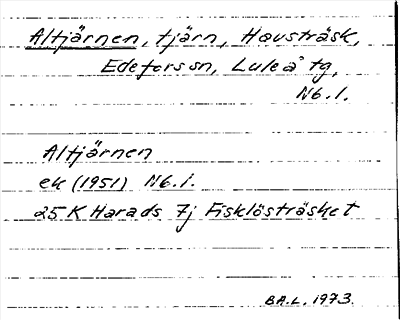 Altjärnen, tjärn, Havsträsk,
Edefors sn, Luleå tg,
Nb. l.
Altjärnen
ek (1951) Nb. l.
25 K Harads 7j Fisklösträsket
B.A.L. 1973.